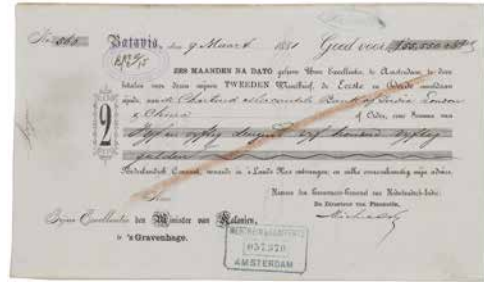 No 565 Batavia, den 9 Maart 1881 Goed voor f 55,550
ZES MAANDEN NA DATO gelieve Uwe Excellentie, te Amsterdam, te doen
betalen voor dezen mijnen TWEEDEN Wisselbrief, de Eerste en Derde onvoldaan
zijnde, aan de Chartered Mercantile Bank of India London
& China of Order, eene Somma van
2
Vijf en vyftig duizend vyf honderd vyftig
gulden
Nederlandsch Courant, waarde in 's Lands Kas ontvangen; en stelle overeenkomstig mijn advies.
Namens den Gouverneur-Generaal van Nederlandsch-Indie:
De Directeur van Financien,
Aan
Zijne Excellentie den Minister van Kolonien,
te 's Gravenhage.
AMSTERDAM